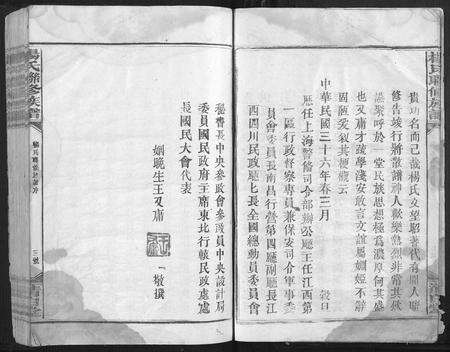 楊氏聯修族譜
貴功名而已哉楊氏文望昭著代有聞人聯
修告竣行將敬譜神人歡樂 非常其
於一堂民族思想極為濃厚何其盛
也又庸才疏學淺安敢言文誼屬姻婭不辭
固陋爰敘其梗概云
中華民國三十六年春三月 穀日
歷任上海警備司令部辦公廳主任江西第
一區行政督察專員兼保安司令軍事委
員會委員長南昌行營第四廳副廳長江
西四川民政廳廳長全國總動員委員會
秘書長中央參政會參政員中央設計局
委員國民政府主席東北行轅民政處處
長國民大會代表
姻晚生王又庸 敬撰
楊氏聯修族譜
三號